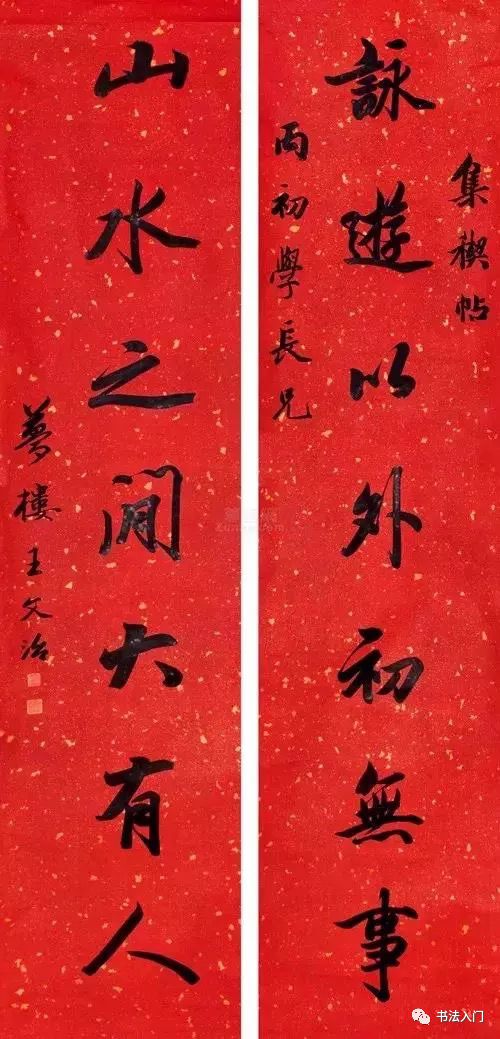 集禊帖
詠遊以外初無事
丙初學長兄
山水之間大有人
夢樓王文治
书法入门